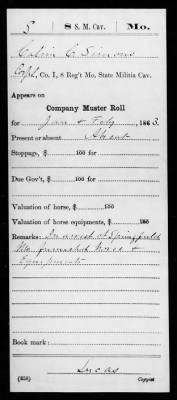 S | 8 S. M. Cav. | Mo.
Calvin C. Simons
Corpl, Co. I, 8 Reg't Mo. State Militia Cav.
Appears on
Company Muster Roll
for Jan & Feby, 1863.
Present or absent Absent
Stoppage, $ 100 for
Due Gov't, $ 100 for
Valuation of horse, $ 100
Valuation of horse equipments, $ 100
Remarks: In arrest at Springfield
Mo furnished Horse &
Equipments
Book mark:
Lucas
(858) Copyist.